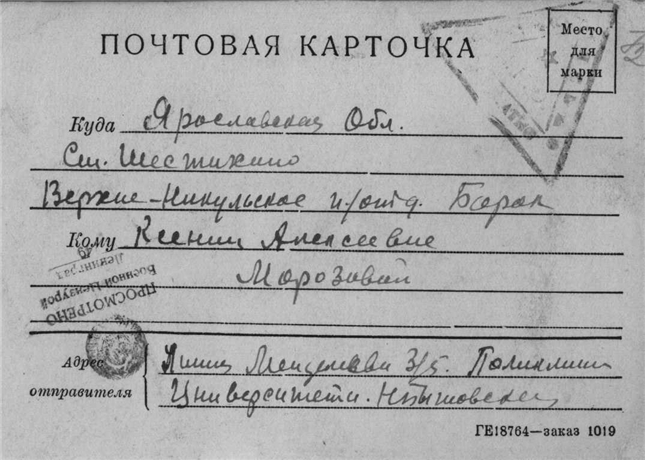 ПОЧТОВАЯ КАРТОЧКА
Место
для
марки
Куда Ярославская Обл.
Ст. Шестихино
Верхне-Никульское п/отд. Борок
Кому Ксении Алексеевне
Морозовой
ПРОСМОТРЕНО
Военной Цензурой
Ленинград
Адрес
отправителя
Линия 3/5. Поликлиника
Университета.
ГЕ18764—заказ 1019